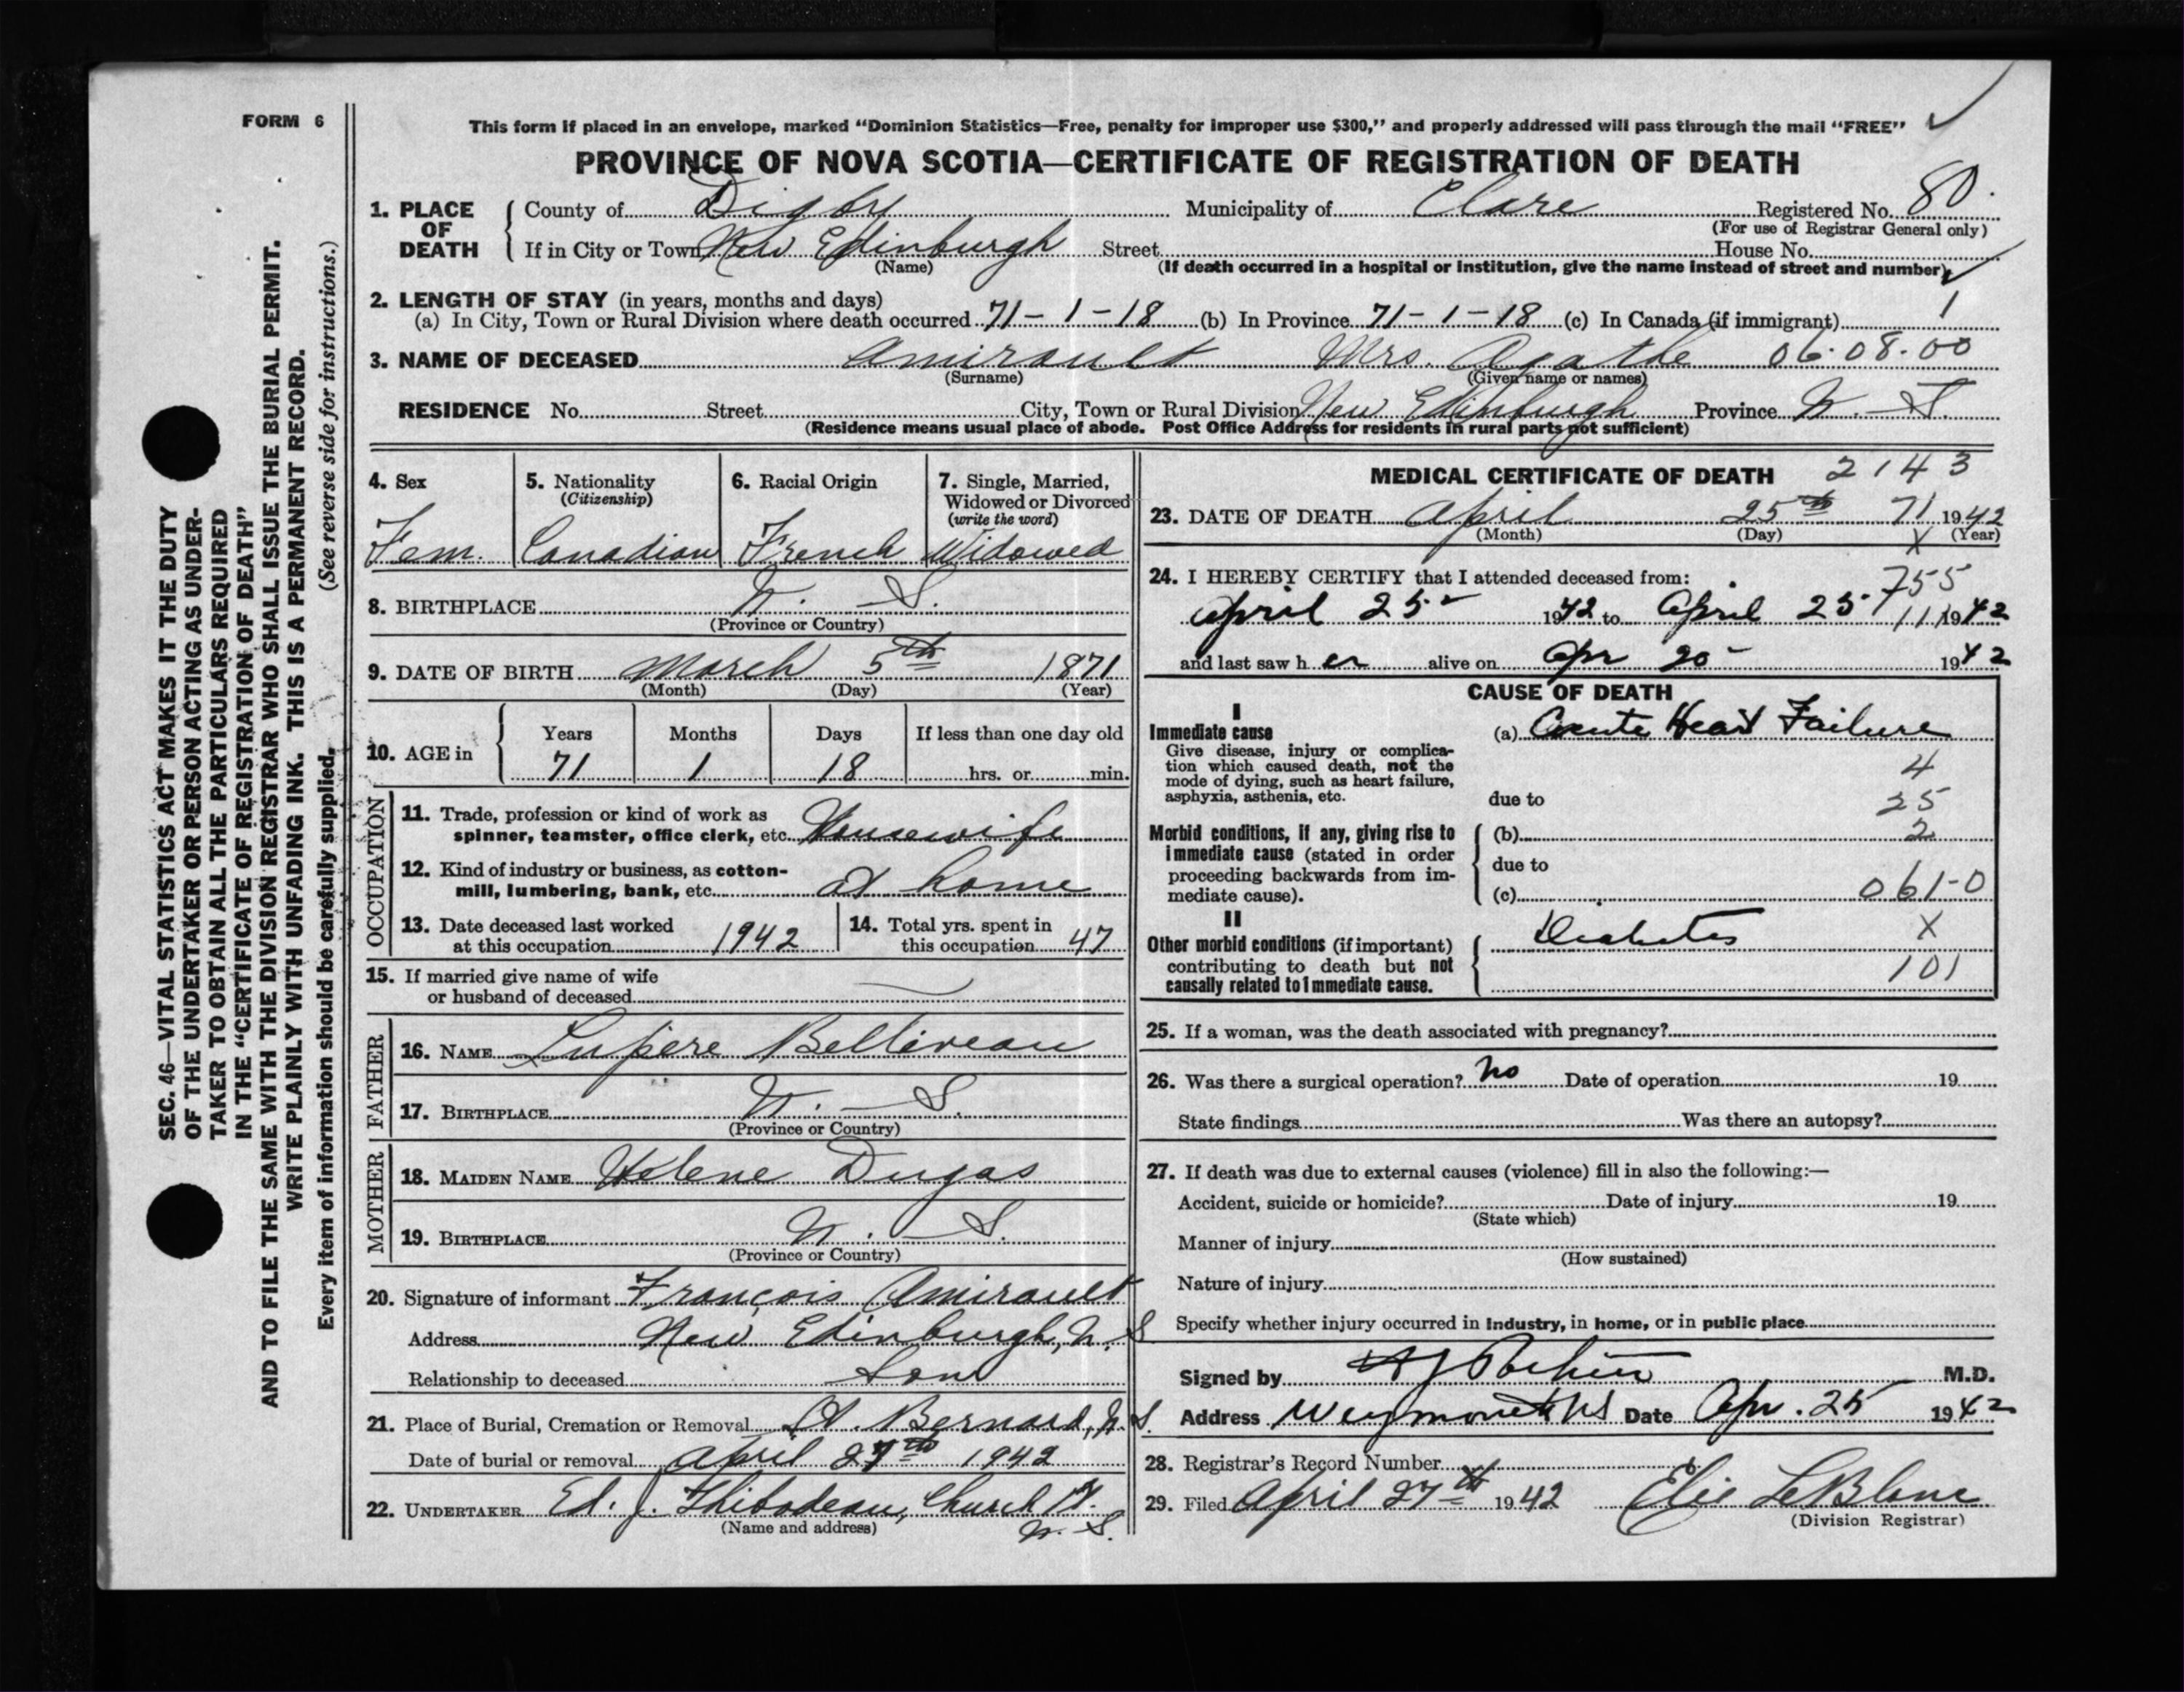 FORM 6
This form if placed in an envelope, marked “Dominion Statistics—Free, penalty for improper use $300,” and properly addressed will pass through the mail “FREE”
PROVINCE OF NOVA SCOTIA—CERTIFICATE OF REGISTRATION OF DEATH
1. PLACE OF DEATH County of Digby Municipality of Clare Registered No. 80.
(For use of Registrar General only)
If in City or Town New Edinburgh Street House No.
(Name) (If death occurred in a hospital or institution, give the name instead of street and number)
2. LENGTH OF STAY (in years, months and days)
(a) In City, Town or Rural Division where death occurred 71-1-18 (b) In Province 71-1-18 (c) In Canada (if immigrant) 1
3. NAME OF DECEASED Amirault Mrs. Agathe 06·08·00
(Surname) (Given name or names)
RESIDENCE No. Street City, Town or Rural Division New Edinburgh Province N. S.
(Residence means usual place of abode. Post Office Address for residents in rural parts not sufficient)
4. Sex Fem.
5. Nationality (Citizenship) Canadian
6. Racial Origin French
7. Single, Married, Widowed or Divorced (write the word) Widowed
8. BIRTHPLACE N. S.
(Province or Country)
9. DATE OF BIRTH March 5th 1871
(Month) (Day) (Year)
10. AGE in Years Months Days If less than one day old
71 1 18 hrs. or min.
OCCUPATION
11. Trade, profession or kind of work as
spinner, teamster, office clerk, etc. Housewife
12. Kind of industry or business, as cotton-
mill, lumbering, bank, etc. at home
13. Date deceased last worked at this occupation 1942
14. Total yrs. spent in this occupation 47
15. If married give name of wife
or husband of deceased —
FATHER
16. NAME Lupère Belliveau
17. BIRTHPLACE N. S.
(Province or Country)
MOTHER
18. MAIDEN NAME Helene Dugas
19. BIRTHPLACE N. S.
(Province or Country)
20. Signature of informant François Amirault
Address New Edinburgh, N. S
Relationship to deceased Son
21. Place of Burial, Cremation or Removal St. Bernard, N. S.
Date of burial or removal April 27th 1942
22. UNDERTAKER Ed. J. Thibodeau, Church Pt.
(Name and address) N. S.
MEDICAL CERTIFICATE OF DEATH 2143
23. DATE OF DEATH April 25th 71 1942
(Month) (Day) X (Year)
24. I HEREBY CERTIFY that I attended deceased from: 755
April 25 1942 to April 25 11 1942
and last saw her alive on Apr 1942
CAUSE OF DEATH
I
Immediate cause (a) Acute Heart Failure
Give disease, injury or complica-
tion which caused death, not the 4
mode of dying, such as heart failure,
asphyxia, asthenia, etc. due to 25
Morbid conditions, if any, giving rise to (b) 2
immediate cause (stated in order due to
proceeding backwards from im-
mediate cause). (c) 061-0
II
Other morbid conditions (if important) Diabetes X
contributing to death but not
causally related to immediate cause. 101
25. If a woman, was the death associated with pregnancy?
26. Was there a surgical operation? No Date of operation 19
State findings Was there an autopsy?
27. If death was due to external causes (violence) fill in also the following:—
Accident, suicide or homicide? Date of injury 19
(State which)
Manner of injury
(How sustained)
Nature of injury
Specify whether injury occurred in industry, in home, or in public place
Signed by M.D.
Address Weymouth NS Date Apr. 25 1942
28. Registrar's Record Number
29. Filed April 27th 1942 Elie LeBlanc
(Division Registrar)
SEC. 46—VITAL STATISTICS ACT MAKES IT THE DUTY
OF THE UNDERTAKER OR PERSON ACTING AS UNDER-
TAKER TO OBTAIN ALL THE PARTICULARS REQUIRED
IN THE “CERTIFICATE OF REGISTRATION OF DEATH”
AND TO FILE THE SAME WITH THE DIVISION REGISTRAR WHO SHALL ISSUE THE BURIAL PERMIT.
WRITE PLAINLY WITH UNFADING INK. THIS IS A PERMANENT RECORD.
Every item of information should be carefully supplied. (See reverse side for instructions.)